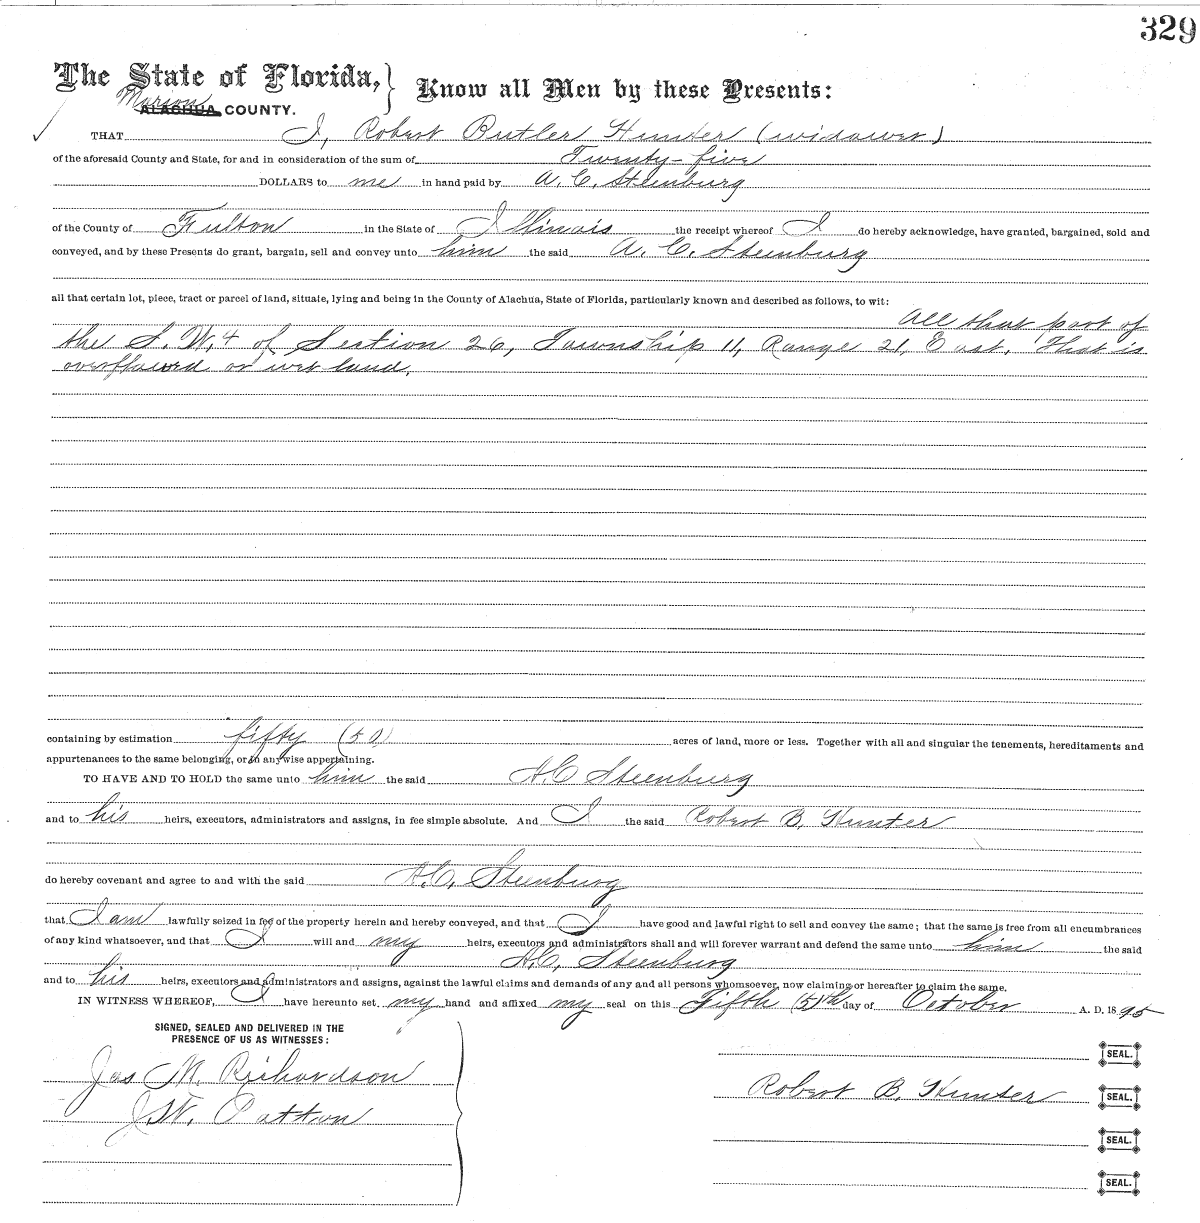 329
The State of Florida, } Know all Men by these Presents:
Marion ALACHUA COUNTY.
THAT I, Robert Butler Hunter (widower)
of the aforesaid County and State, for and in consideration of the sum of Twenty-five
DOLLARS to me in hand paid by A. C. Steenburg
of the County of Fulton in the State of Illinois the receipt whereof I do hereby acknowledge, have granted, bargained, sold and
conveyed, and by these Presents do grant, bargain, sell and convey unto him the said A. C. Steenburg
all that certain lot, piece, tract or parcel of land, situate, lying and being in the County of Alachua, State of Florida, particularly known and described as follows, to wit:
All that part of
the S. W. 4 of Section 26, Township 11, Range 21, East, That is
overflowed or wet land.
containing by estimation fifty (50) acres of land, more or less. Together with all and singular the tenements, hereditaments and
appurtenances to the same belonging, or in anywise appertaining.
TO HAVE AND TO HOLD the same unto him the said A. C. Steenburg
and to his heirs, executors, administrators and assigns, in fee simple absolute. And I the said Robert B. Hunter
do hereby covenant and agree to and with the said A. C. Steenburg
that I am lawfully seized in fee of the property herein and hereby conveyed, and that I have good and lawful right to sell and convey the same; that the same is free from all encumbrances
of any kind whatsoever, and that I will and my heirs, executors and administrators shall and will forever warrant and defend the same unto him the said
A. C. Steenburg
and to his heirs, executors and administrators and assigns, against the lawful claims and demands of any and all persons whomsoever, now claiming or hereafter to claim the same.
IN WITNESS WHEREOF, I have hereunto set my hand and affixed my seal on this Fifth (5)th day of October A. D. 1895
SIGNED, SEALED AND DELIVERED IN THE
PRESENCE OF US AS WITNESSES:
SEAL.
Jas M. Richardson
Robert B. Hunter SEAL.
J. W. Patton
SEAL.
SEAL.